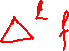 △ L f